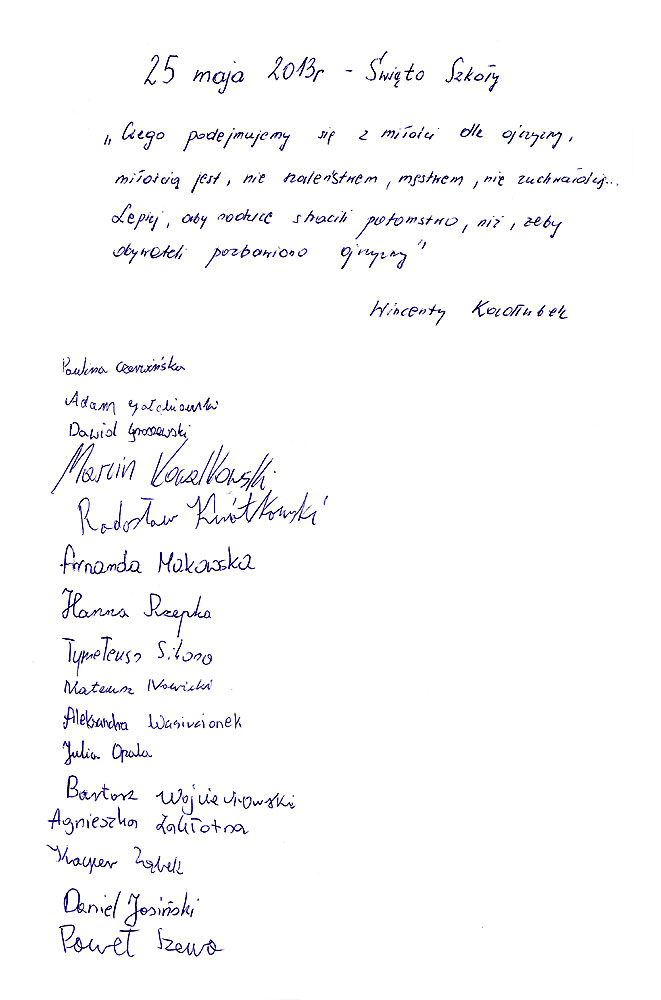 25 maja 2013r - Święto Szkoły
„Czego podejmujemy się z miłości dla ojczyzny,
miłością jest, nie szaleństwem, męstwem, nie zuchwałością...
Lepiej, aby rodzice stracili potomstwo, niż, żeby
obywateli pozbawiono ojczyzny"
Wincenty Kadłubek
Paulina Czerwińska
Adam
Dawid
Marcin Kowalkowski
Radosław Kwiatkowski
Armanda Makowska
Hanna Rzepka
Tymoteusz
Mateusz Nowicki
Aleksandra
Julia Opala
Bartosz Wojciechowski
Agnieszka Zakłotna
Kacper Ząbek
Daniel Josiński
Paweł Szewo